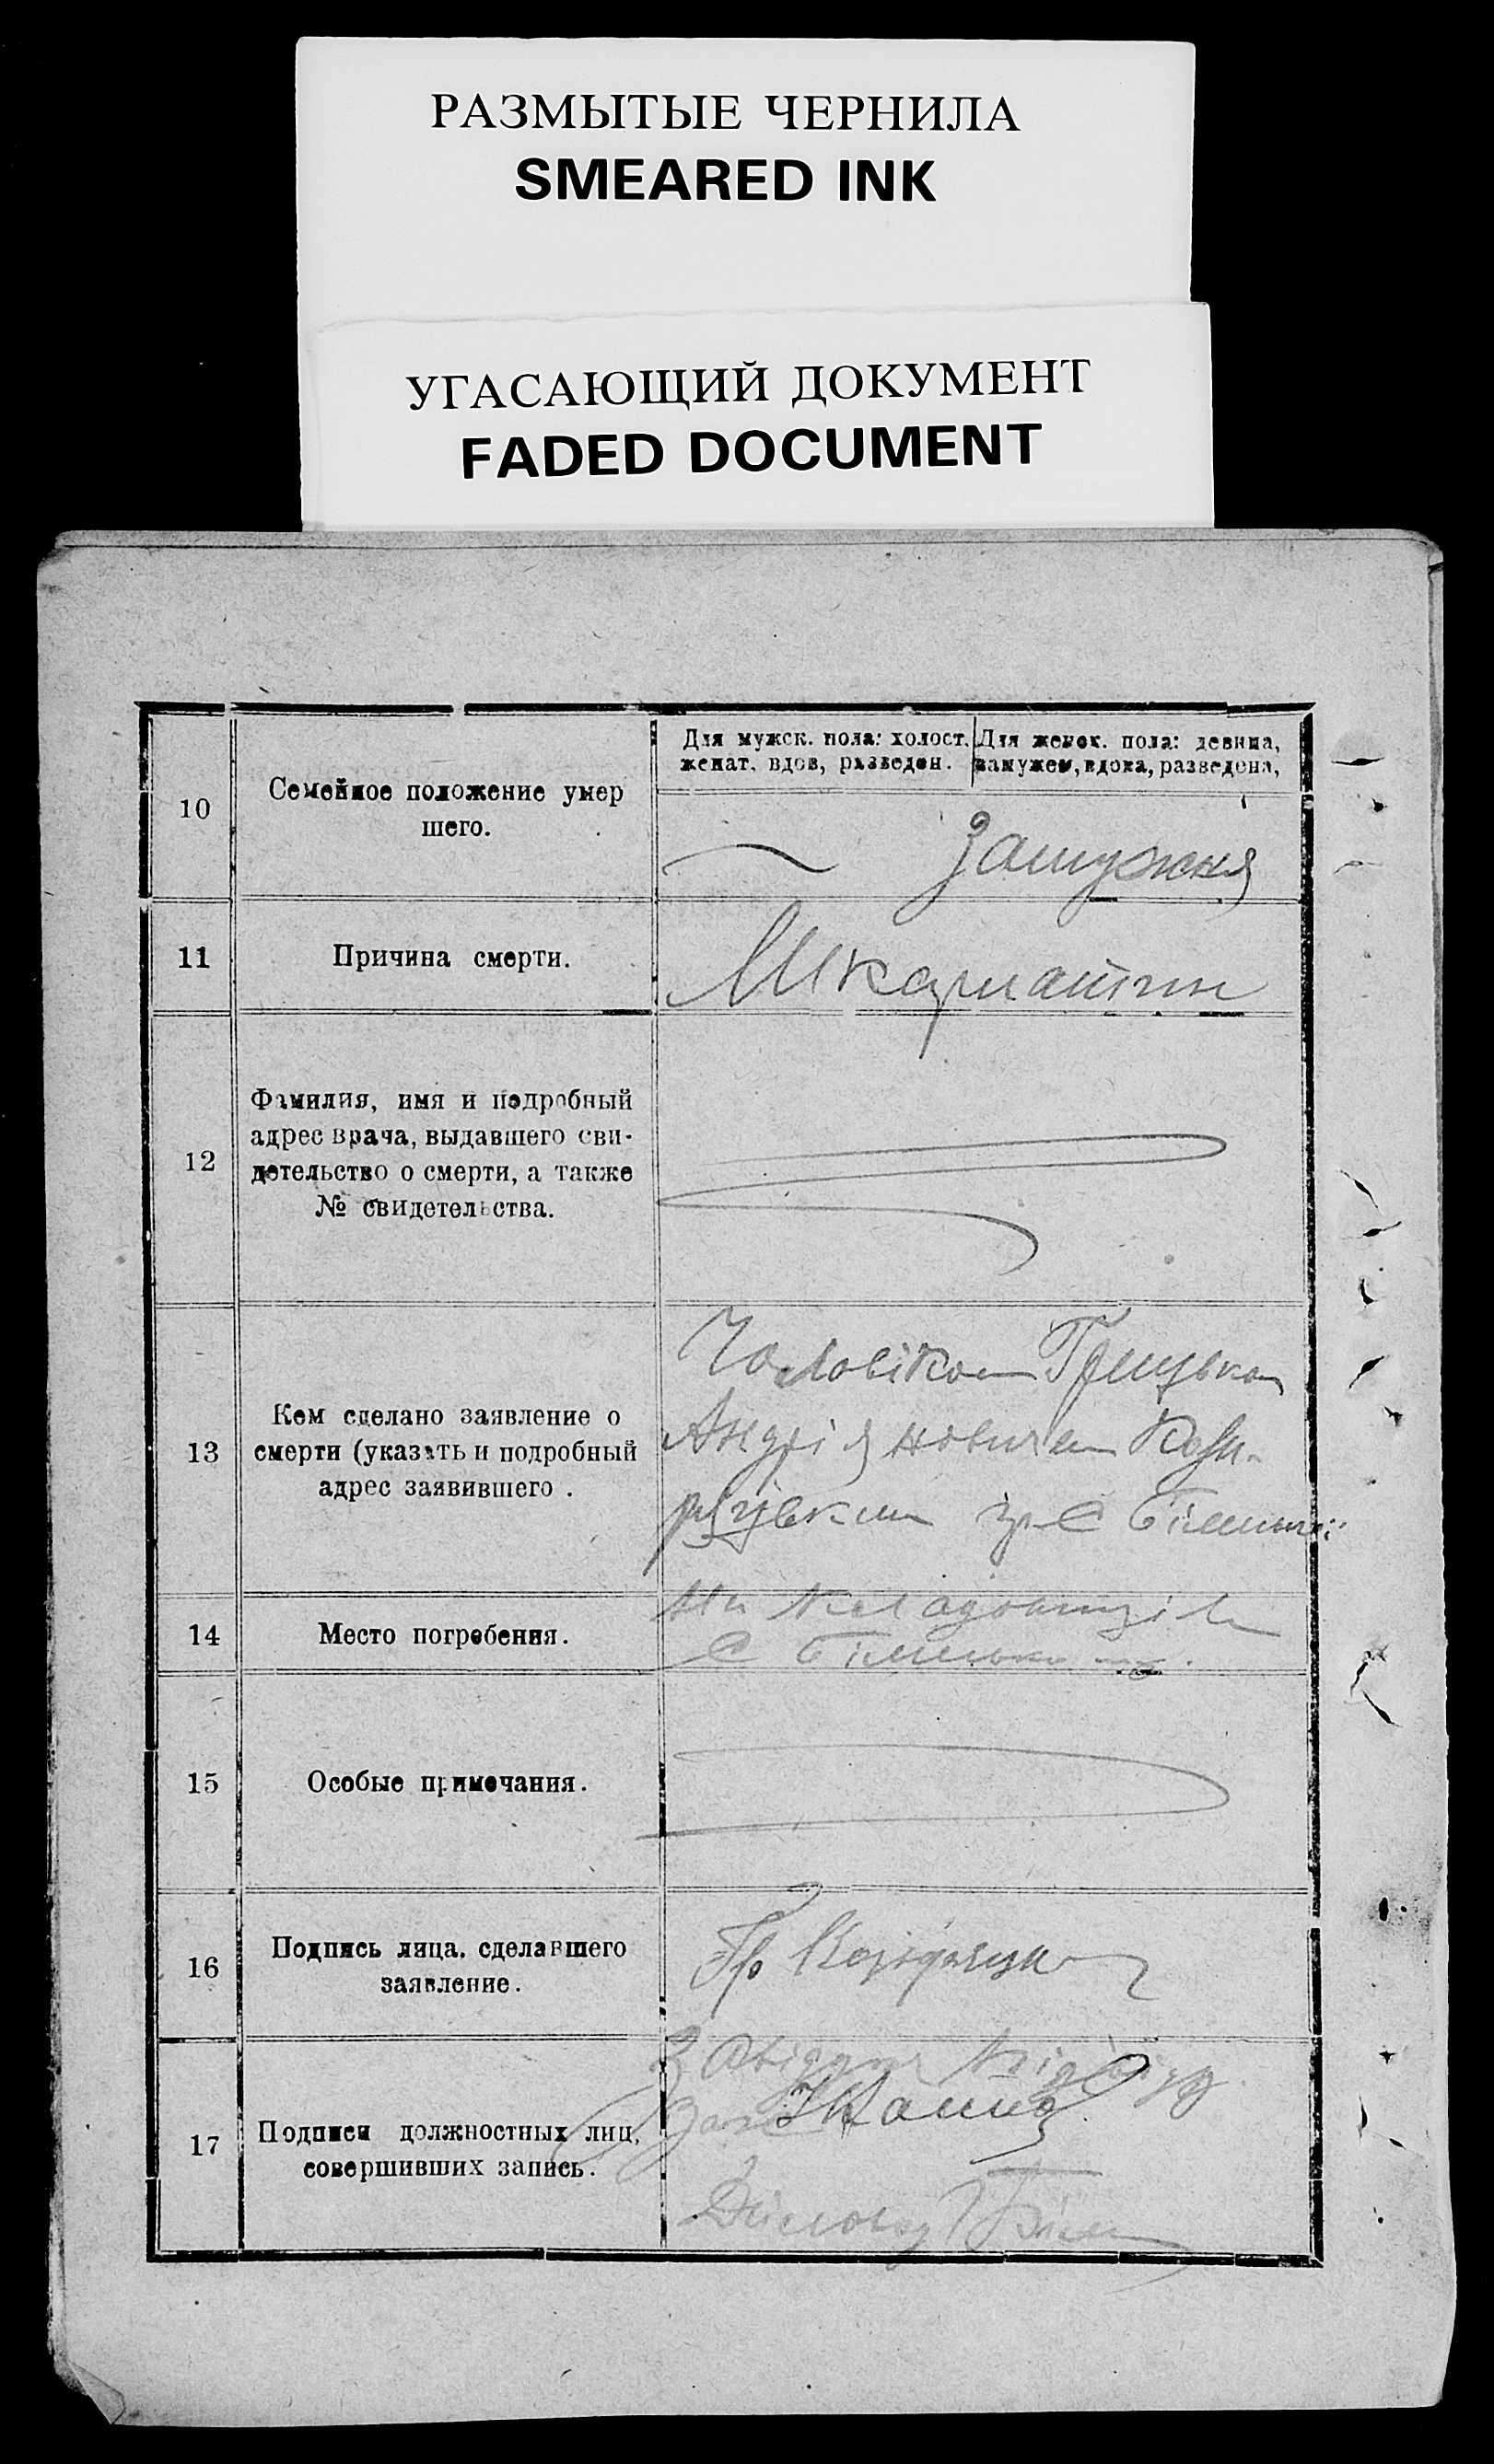 РАЗМЫТЫЕ ЧЕРНИЛА
SMEARED INK
УГАСАЮЩИЙ ДОКУМЕНТ
FADED DOCUMENT
Для мужск. пола: холост. Для женск. пола: девица,
женат, вдов, разведен. замужем, вдова, разведена,
10
Семейное положение умер
шего.
Замужня
11
Причина смерти.
Шкарлатин
12
Фамилия, имя и подробный
адрес врача, выдавшего сви-
детельство о смерти, а также
№ свидетельства.
13
Кем сделано заявление о
смерти (указать и подробный
адрес заявившего.
Чоловіком Грицьком
Андріяновичем
з с
14
Место погребения.
На кладовищі
с
15
Особые примечания.
16
Подпись лица, сделавшего
заявление.
Гр
17
Подписи должностных лиц,
совершивших запись.
Завідуюч
Діловод